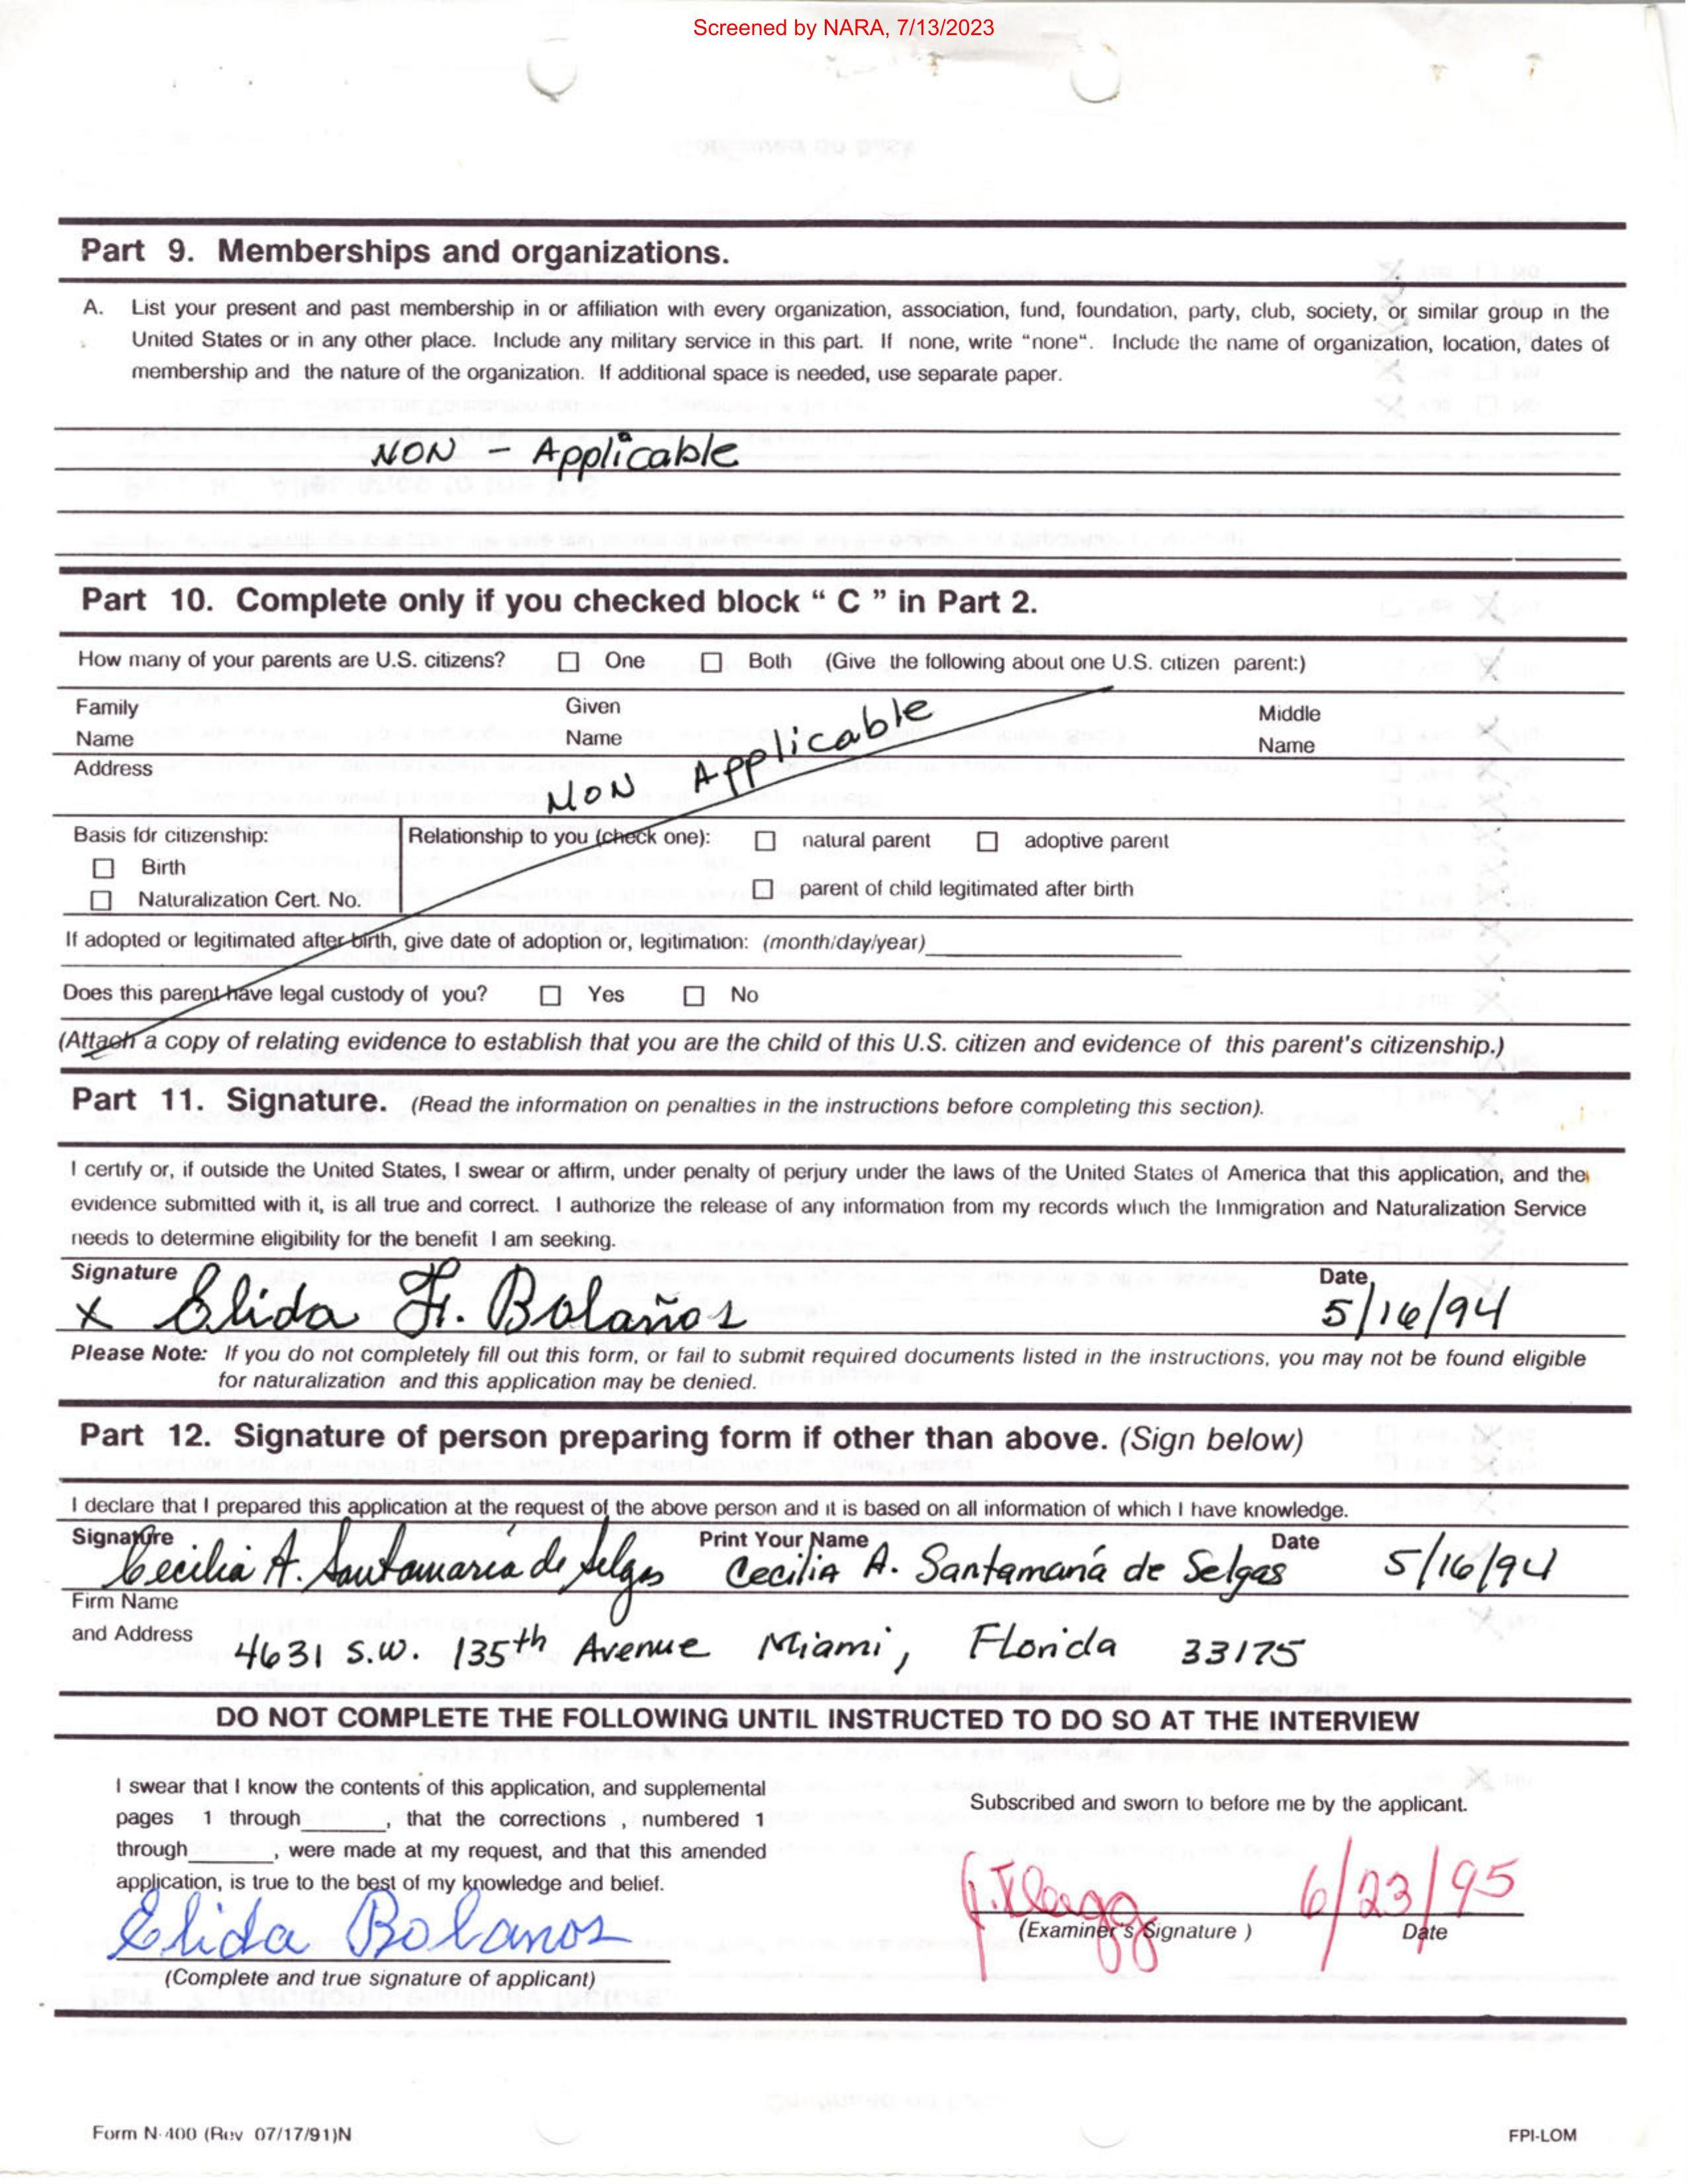 Screened by NARA, 7/13/2023
Part 9. Memberships and organizations.
A. List your present and past membership in or affiliation with every organization, association, fund, foundation, party, club, society, or similar group in the
United States or in any other place. Include any military service in this part. If none, write “none“. Include the name of organization, location, dates of
membership and the nature of the organization. If additional space is needed, use separate paper.
NON - Applicable
Part 10. Complete only if you checked block “ C ” in Part 2.
How many of your parents are U.S. citizens? ☐ One ☐ Both (Give the following about one U.S. citizen parent:)
Family Name Given Name Middle Name
Address
NON Applicable
Basis for citizenship: Relationship to you (check one): ☐ natural parent ☐ adoptive parent
☐ Birth
☐ parent of child legitimated after birth
☐ Naturalization Cert. No.
If adopted or legitimated after birth, give date of adoption or, legitimation: (month/day/year)
Does this parent have legal custody of you? ☐ Yes ☐ No
(Attach a copy of relating evidence to establish that you are the child of this U.S. citizen and evidence of this parent's citizenship.)
Part 11. Signature. (Read the information on penalties in the instructions before completing this section).
I certify or, if outside the United States, I swear or affirm, under penalty of perjury under the laws of the United States of America that this application, and the
evidence submitted with it, is all true and correct. I authorize the release of any information from my records which the Immigration and Naturalization Service
needs to determine eligibility for the benefit I am seeking.
Signature Date
x Elida F. Bolaños 5/16/94
Please Note: If you do not completely fill out this form, or fail to submit required documents listed in the instructions, you may not be found eligible
for naturalization and this application may be denied.
Part 12. Signature of person preparing form if other than above. (Sign below)
I declare that I prepared this application at the request of the above person and it is based on all information of which I have knowledge.
Signature Print Your Name Date
Cecilia A. Santamaría de Selgas Cecilia A. Santamaría de Selgas 5/16/94
Firm Name
and Address 4631 S.W. 135th Avenue Miami, Florida 33175
DO NOT COMPLETE THE FOLLOWING UNTIL INSTRUCTED TO DO SO AT THE INTERVIEW
I swear that I know the contents of this application, and supplemental
pages 1 through______, that the corrections , numbered 1
through______, were made at my request, and that this amended
application, is true to the best of my knowledge and belief.
Elida Bolanos
(Complete and true signature of applicant)
Subscribed and sworn to before me by the applicant.
6/23/95
(Examiner's Signature ) Date
Form N-400 (Rev 07/17/91)N FPI-LOM